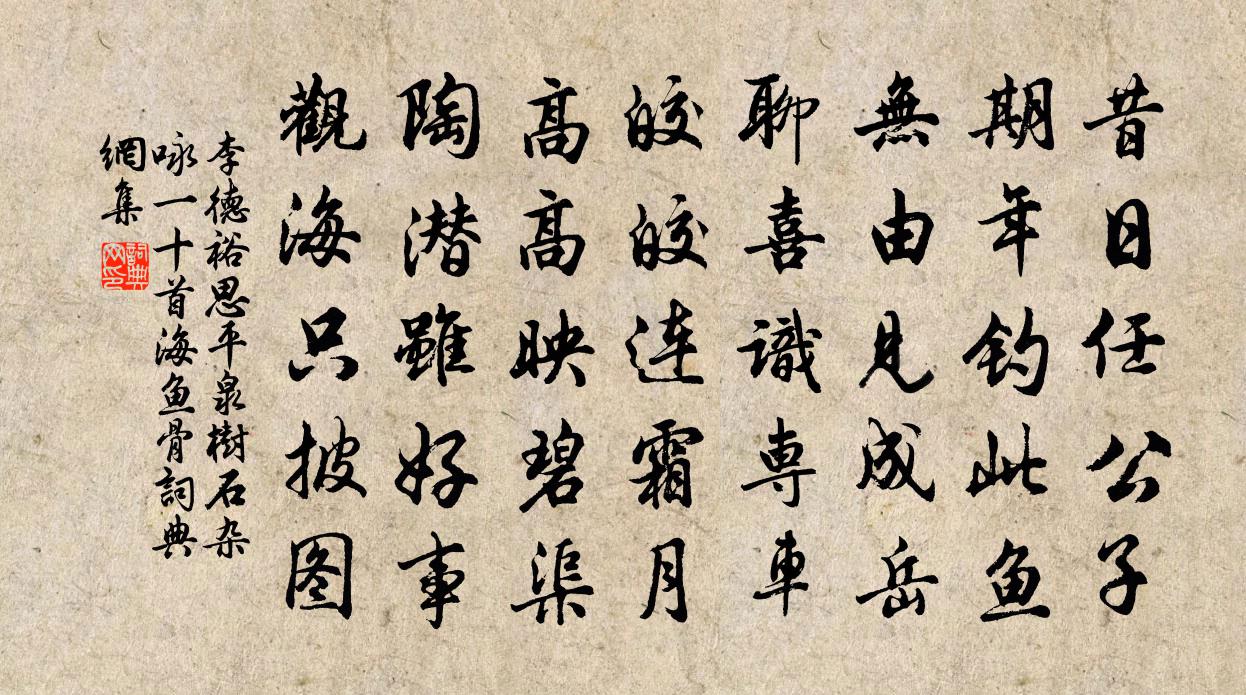 昔日任公子
期年钓此鱼
無由見成岳
聊喜識専車
皎皎連霜月
高高映碧渠
陶潜雖好事
觀海只披图
李德裕思平泉樹石杂
咏一十首海鱼骨詞典
網集
詞典
网印